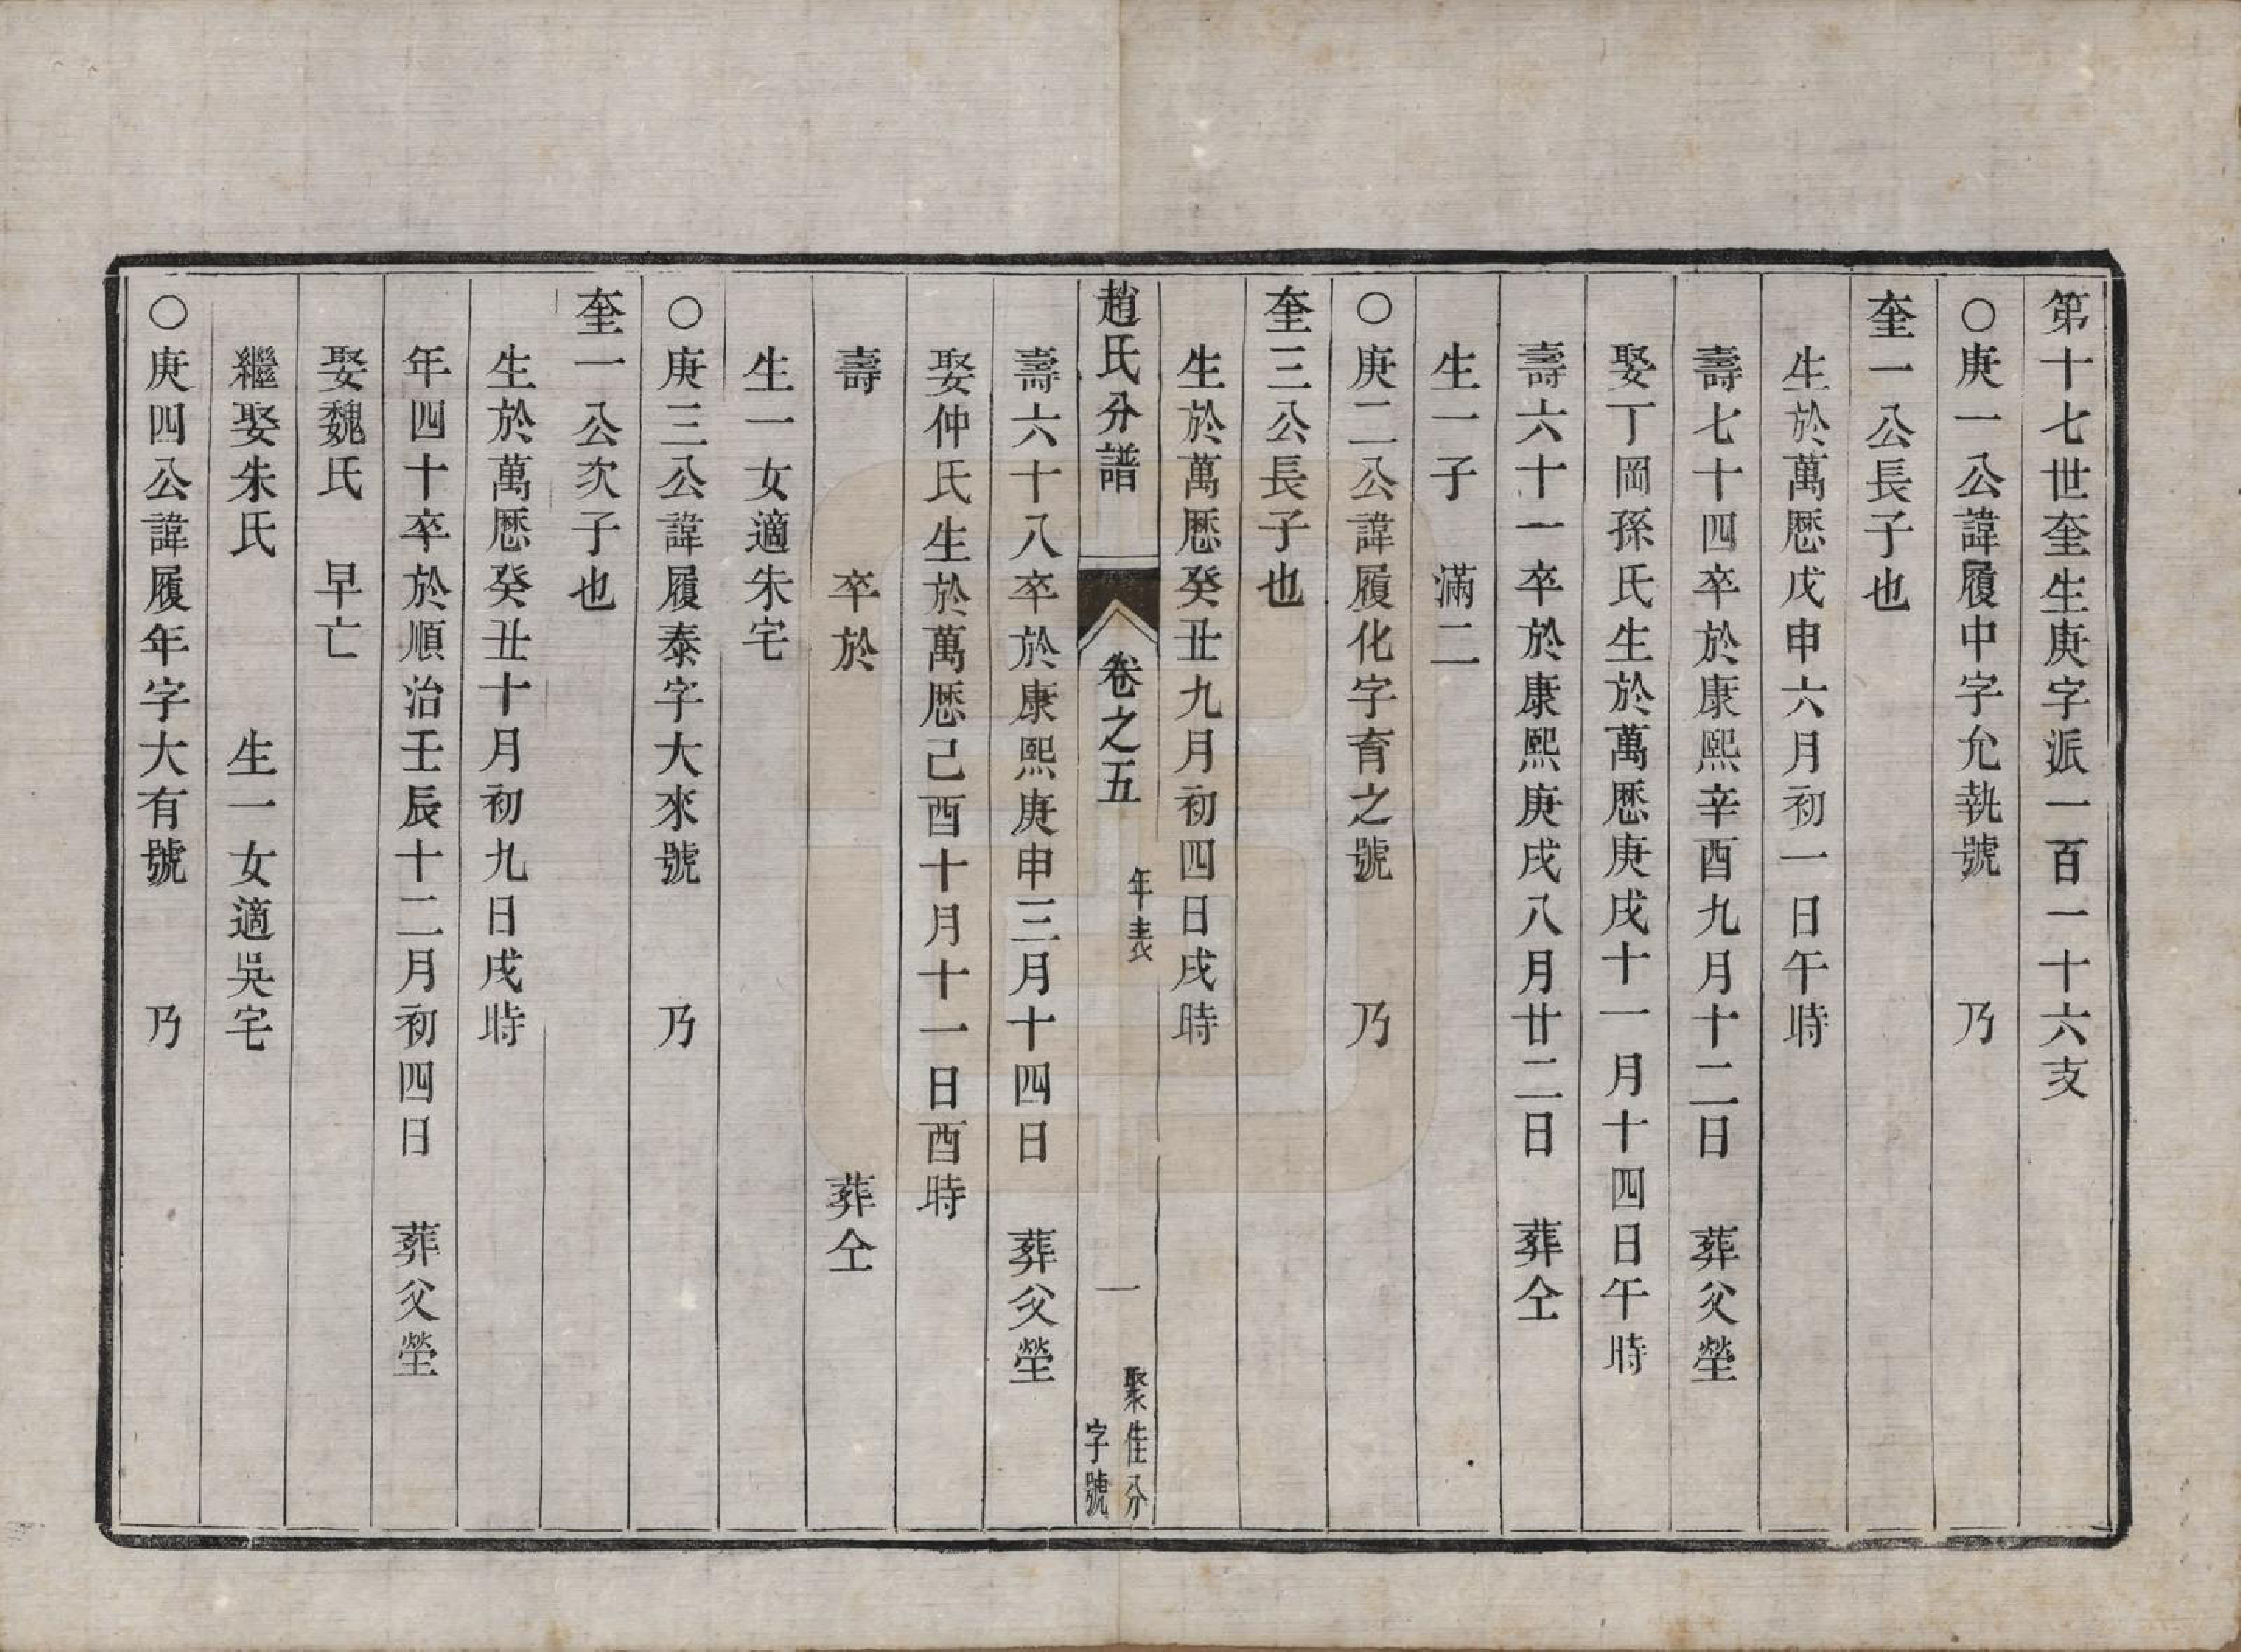 第十七世奎生庚字派一百一十六支
○庚一公諱履中字允執號　乃
奎一公長子也
生於萬厯戊申六月初一日午時
壽七十四卒於康熙辛酉九月十二日　葬父塋
娶丁岡孫氏生於萬厯庚戌十一月十四日午時
壽六十一卒於康熙庚戌八月廿二日　葬仝
生一子　滿二
○庚二公諱履化字育之號　乃
奎三公長子也
生於萬厯癸丑九月初四日戌時
趙氏分譜　卷之五　年表　一　聚佳分
字號
壽六十八卒於康熙庚申三月十四日　葬父塋
娶仲氏生於萬厯己酉十月十一日酉時
壽　卒於　葬仝
生一女適朱宅
○庚三公諱履泰字大來號　乃
奎一公次子也
生於萬厯癸丑十月初九日戌時
年四十卒於順治壬辰十二月初四日　葬父塋
娶魏氏　早亡
繼娶朱氏　生一女適吳宅
○庚四公諱履年字大有號　乃